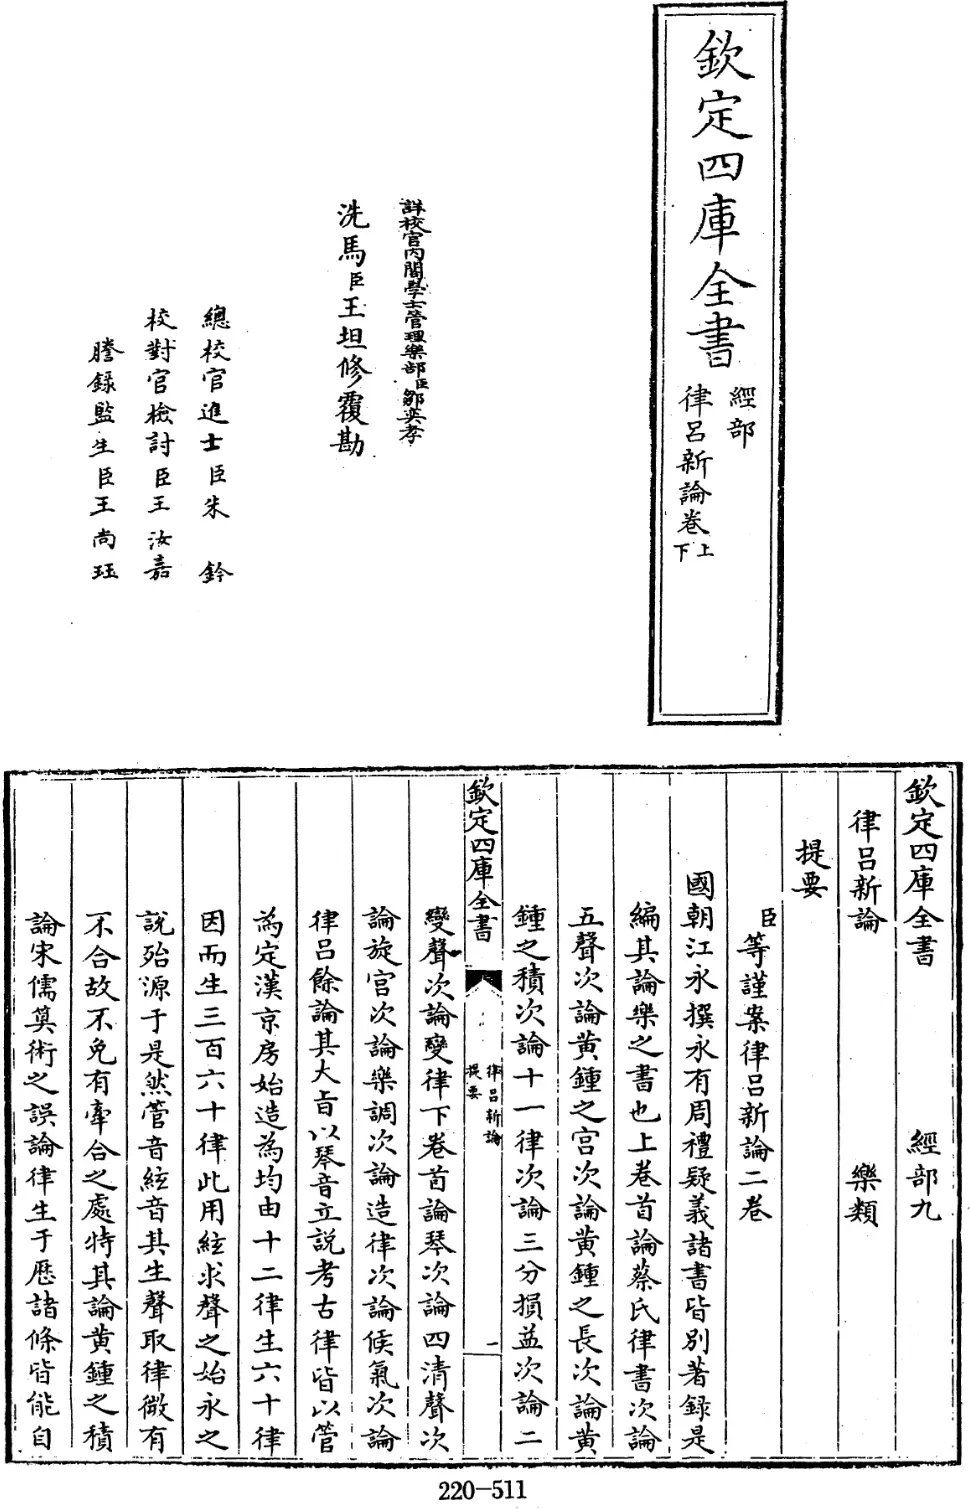 欽定四庫全書
經部
律呂新論卷上下
詳校官内閣學士管理樂部臣鄒奕孝
洗馬臣王坦修覆勘
總校官進士臣朱鈐
校對官檢討臣王汝嘉
謄錄監生臣王尚珏
欽定四庫全書 經部九
律呂新論 樂類
提要
臣等謹案律呂新論二卷
國朝江永撰永有周禮疑義諸書皆別著錄是
編其論樂之書也上卷首論蔡氏律書次論
五聲次論黄鍾之宫次論黄鍾之長次論黄
鍾之積次論十一律次論三分損益次論二
欽定四庫全書
律呂新論
提要
一
變聲次論變律下卷首論琴次論四清聲次
論旋宫次論樂調次論造律次論候氣次論
律呂餘論其大旨以琴音立說考古律皆以管
為定漢京房始造為均由十二律生六十律
因而生三百六十律此用絃求聲之始永之
說殆源于是然管音絃音其生聲取律微有
不合故不免有牽合之處特其論黄鍾之積
論宋儒算術之誤論律生于厯諸條皆能自
220-511